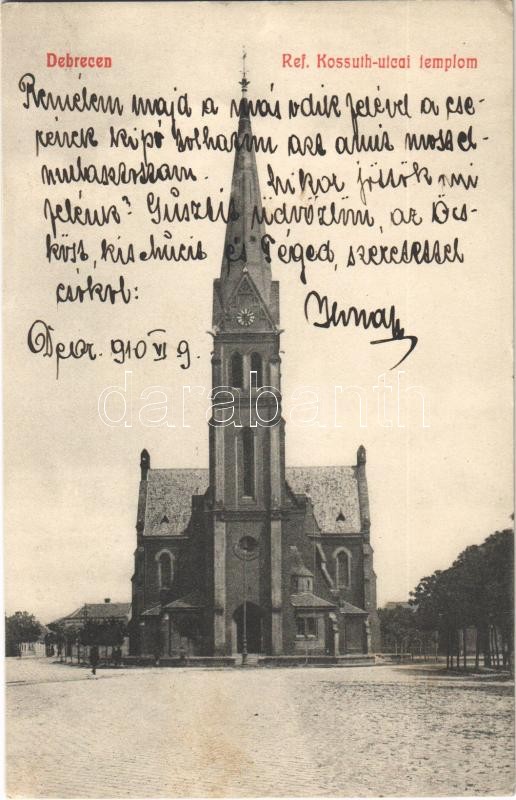 Debrecen
Ref. Kossuth-utcai templom
Remélem majd a más vdik felével a cse-
rének kipó tolhatom azt amit most el-
mulasztottam. Mikor jöttök mi
felénk? Guszti üdvözlöm, az Öcs-
köst, kis Mucit és Téged, szeretettel
csókol:
Ilona
Dbr. 910 VI 9.
darabanth